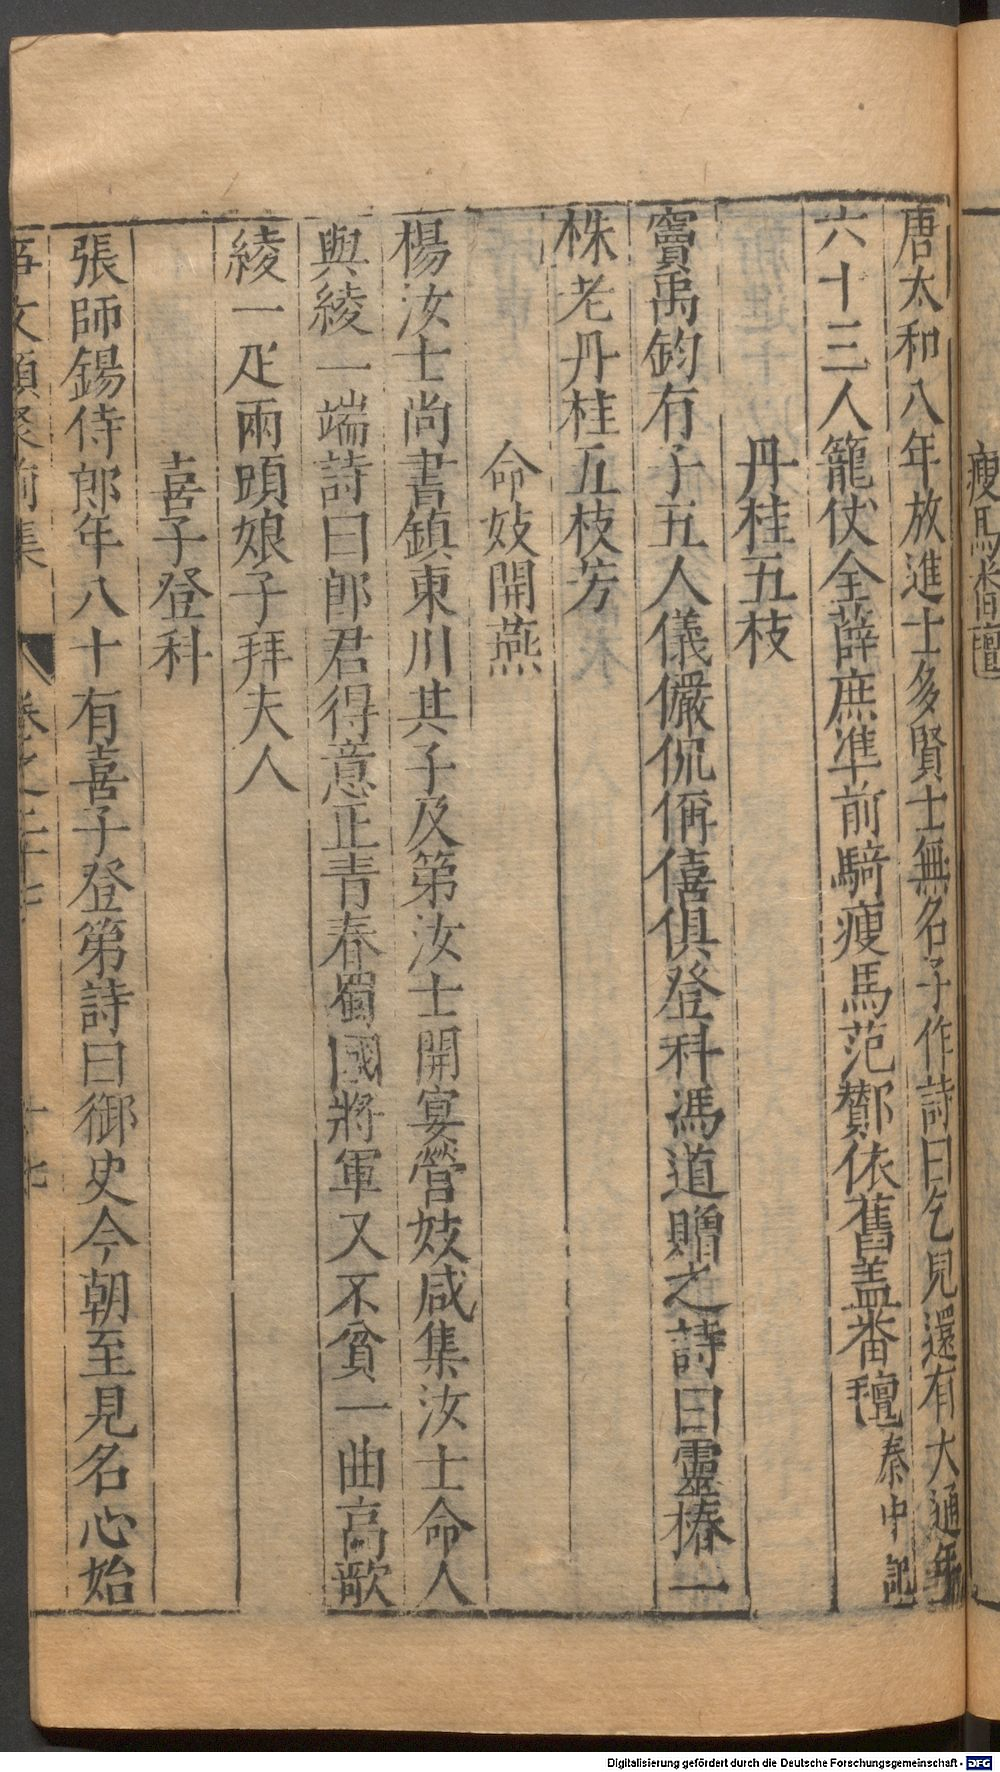 瘦馬
唐太和八年放進士多賢士無名子作詩曰乞兒還有大通年
六十三人籠仗全薛庶准前騎瘦馬范鄼依舊盖番氊秦中記
丹桂五枝
竇禹鈞有子五人儀儼侃偁僖俱登科馮道贈之詩曰靈椿一
株老丹桂五枝芳
命妓開燕
楊汝士尚書鎮東川其子及第汝士開宴營妓咸集汝士命人
與綾一端詩曰郎君得意正青春蜀國將軍又不貧一曲高歌
綾一疋兩頭娘子拜夫人
喜子登科
張師錫侍郎年八十有喜子登第詩曰御史今朝至見名心始
事文類聚前集 卷之二十七 十七
Digitalisierung gefördert durch die Deutsche Forschungsgemeinschaft - DFG